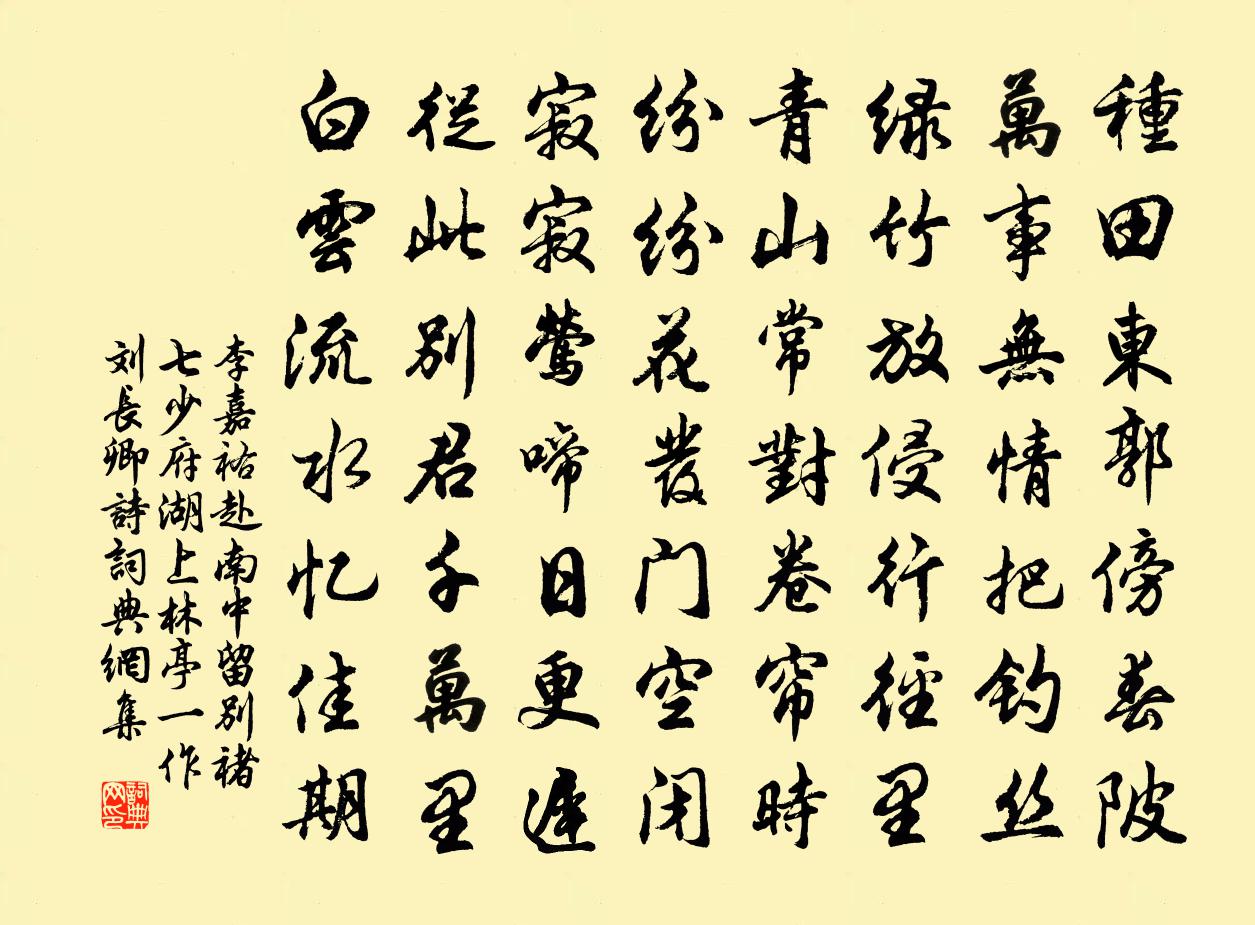 種田東郭傍春陂
萬事無情把钓丝
绿竹放侵行徑里
青山常對卷帘時
纷纷花發门空闭
寂寂鶯啼日更遲
從此别君千萬里
白雲流水忆佳期
李嘉祐赴南中留别褚
七少府湖上林亭一作
刘長卿詩詞典網集
詞典
网印